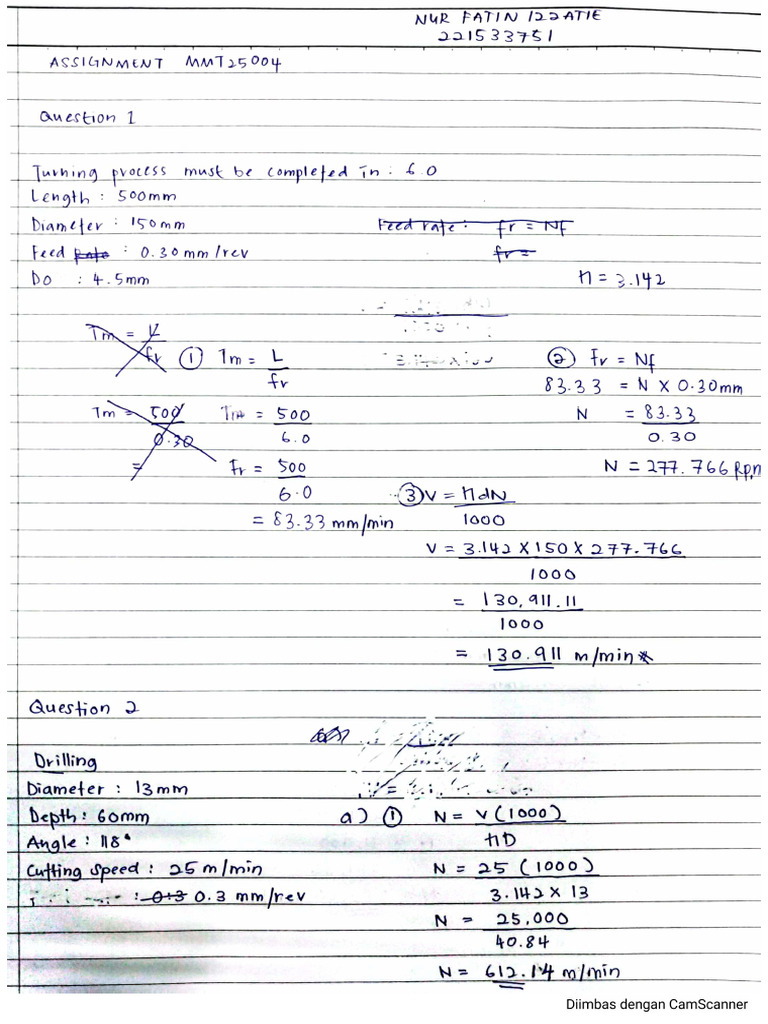 NUR FATIN IZZATIE
221533751
ASSIGNMENT MMT25004
Question 1
Turning process must be completed in : 6.0
Length : 500mm
Diameter : 150mm
Feed rate : fr = Nf
Feed rate : 0.30 mm/rev
fr =
DO : 4.5mm
π = 3.142
Tm = L
fr
① Tm = L
fr
② Fr = Nf
83.33 = N X 0.30mm
Tm = 500
0.30
=
Tm = 500
6.0
N = 83.33
0.30
Fr = 500
6.0
N = 277.766 Rpm
= 83.33 mm/min
③ V = πdN
1000
V = 3.142 X 150 X 277.766
1000
= 130,911.11
1000
= 130.911 m/min*
Question 2
Drilling
Diameter : 13mm
Depth : 60mm
a) ① N = V (1000)
πD
Angle : 118°
Cutting speed : 25 m/min
N = 25 (1000)
3.142 x 13
: 0.3 0.3 mm/rev
N = 25,000
40.84
N = 612.14 m/min
Diimbas dengan CamScanner